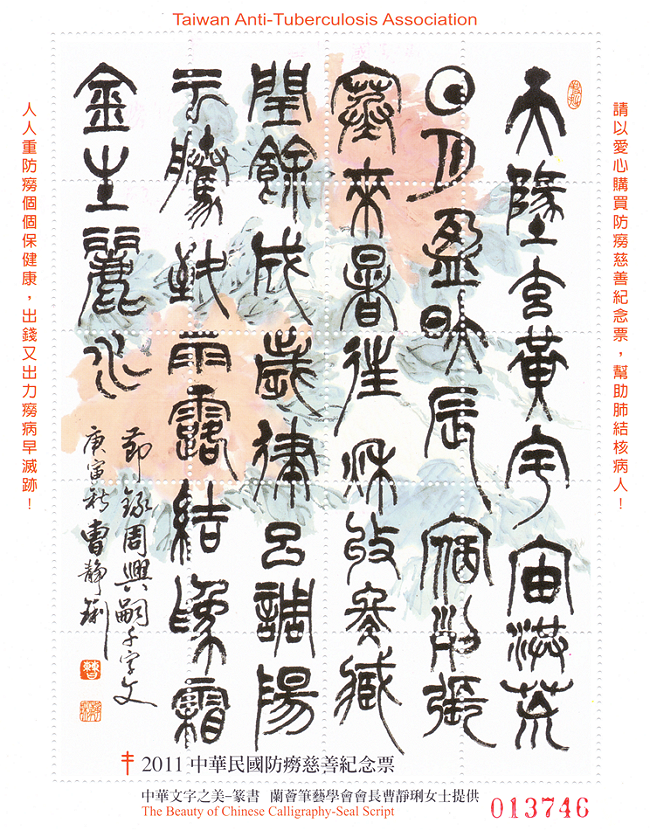 Taiwan Anti-Tuberculosis Association
請以愛心購買防癆慈善紀念票，幫助肺結核病人！
天墬玄黃宇宙洪荒
日月盈昃辰宿列張
寒來暑往秋收冬藏
閏餘成歲律呂調陽
云騰致雨露結為霜
金生麗水
節錄周興嗣千字文
庚寅秋曹靜琍
人人重防癆個個保健康，出錢又出力癆病早滅跡！
2011 中華民國防癆慈善紀念票
中華文字之美-篆書 蘭薈筆藝學會會長曹靜琍女士提供
The Beauty of Chinese Calligraphy-Seal Script
013746